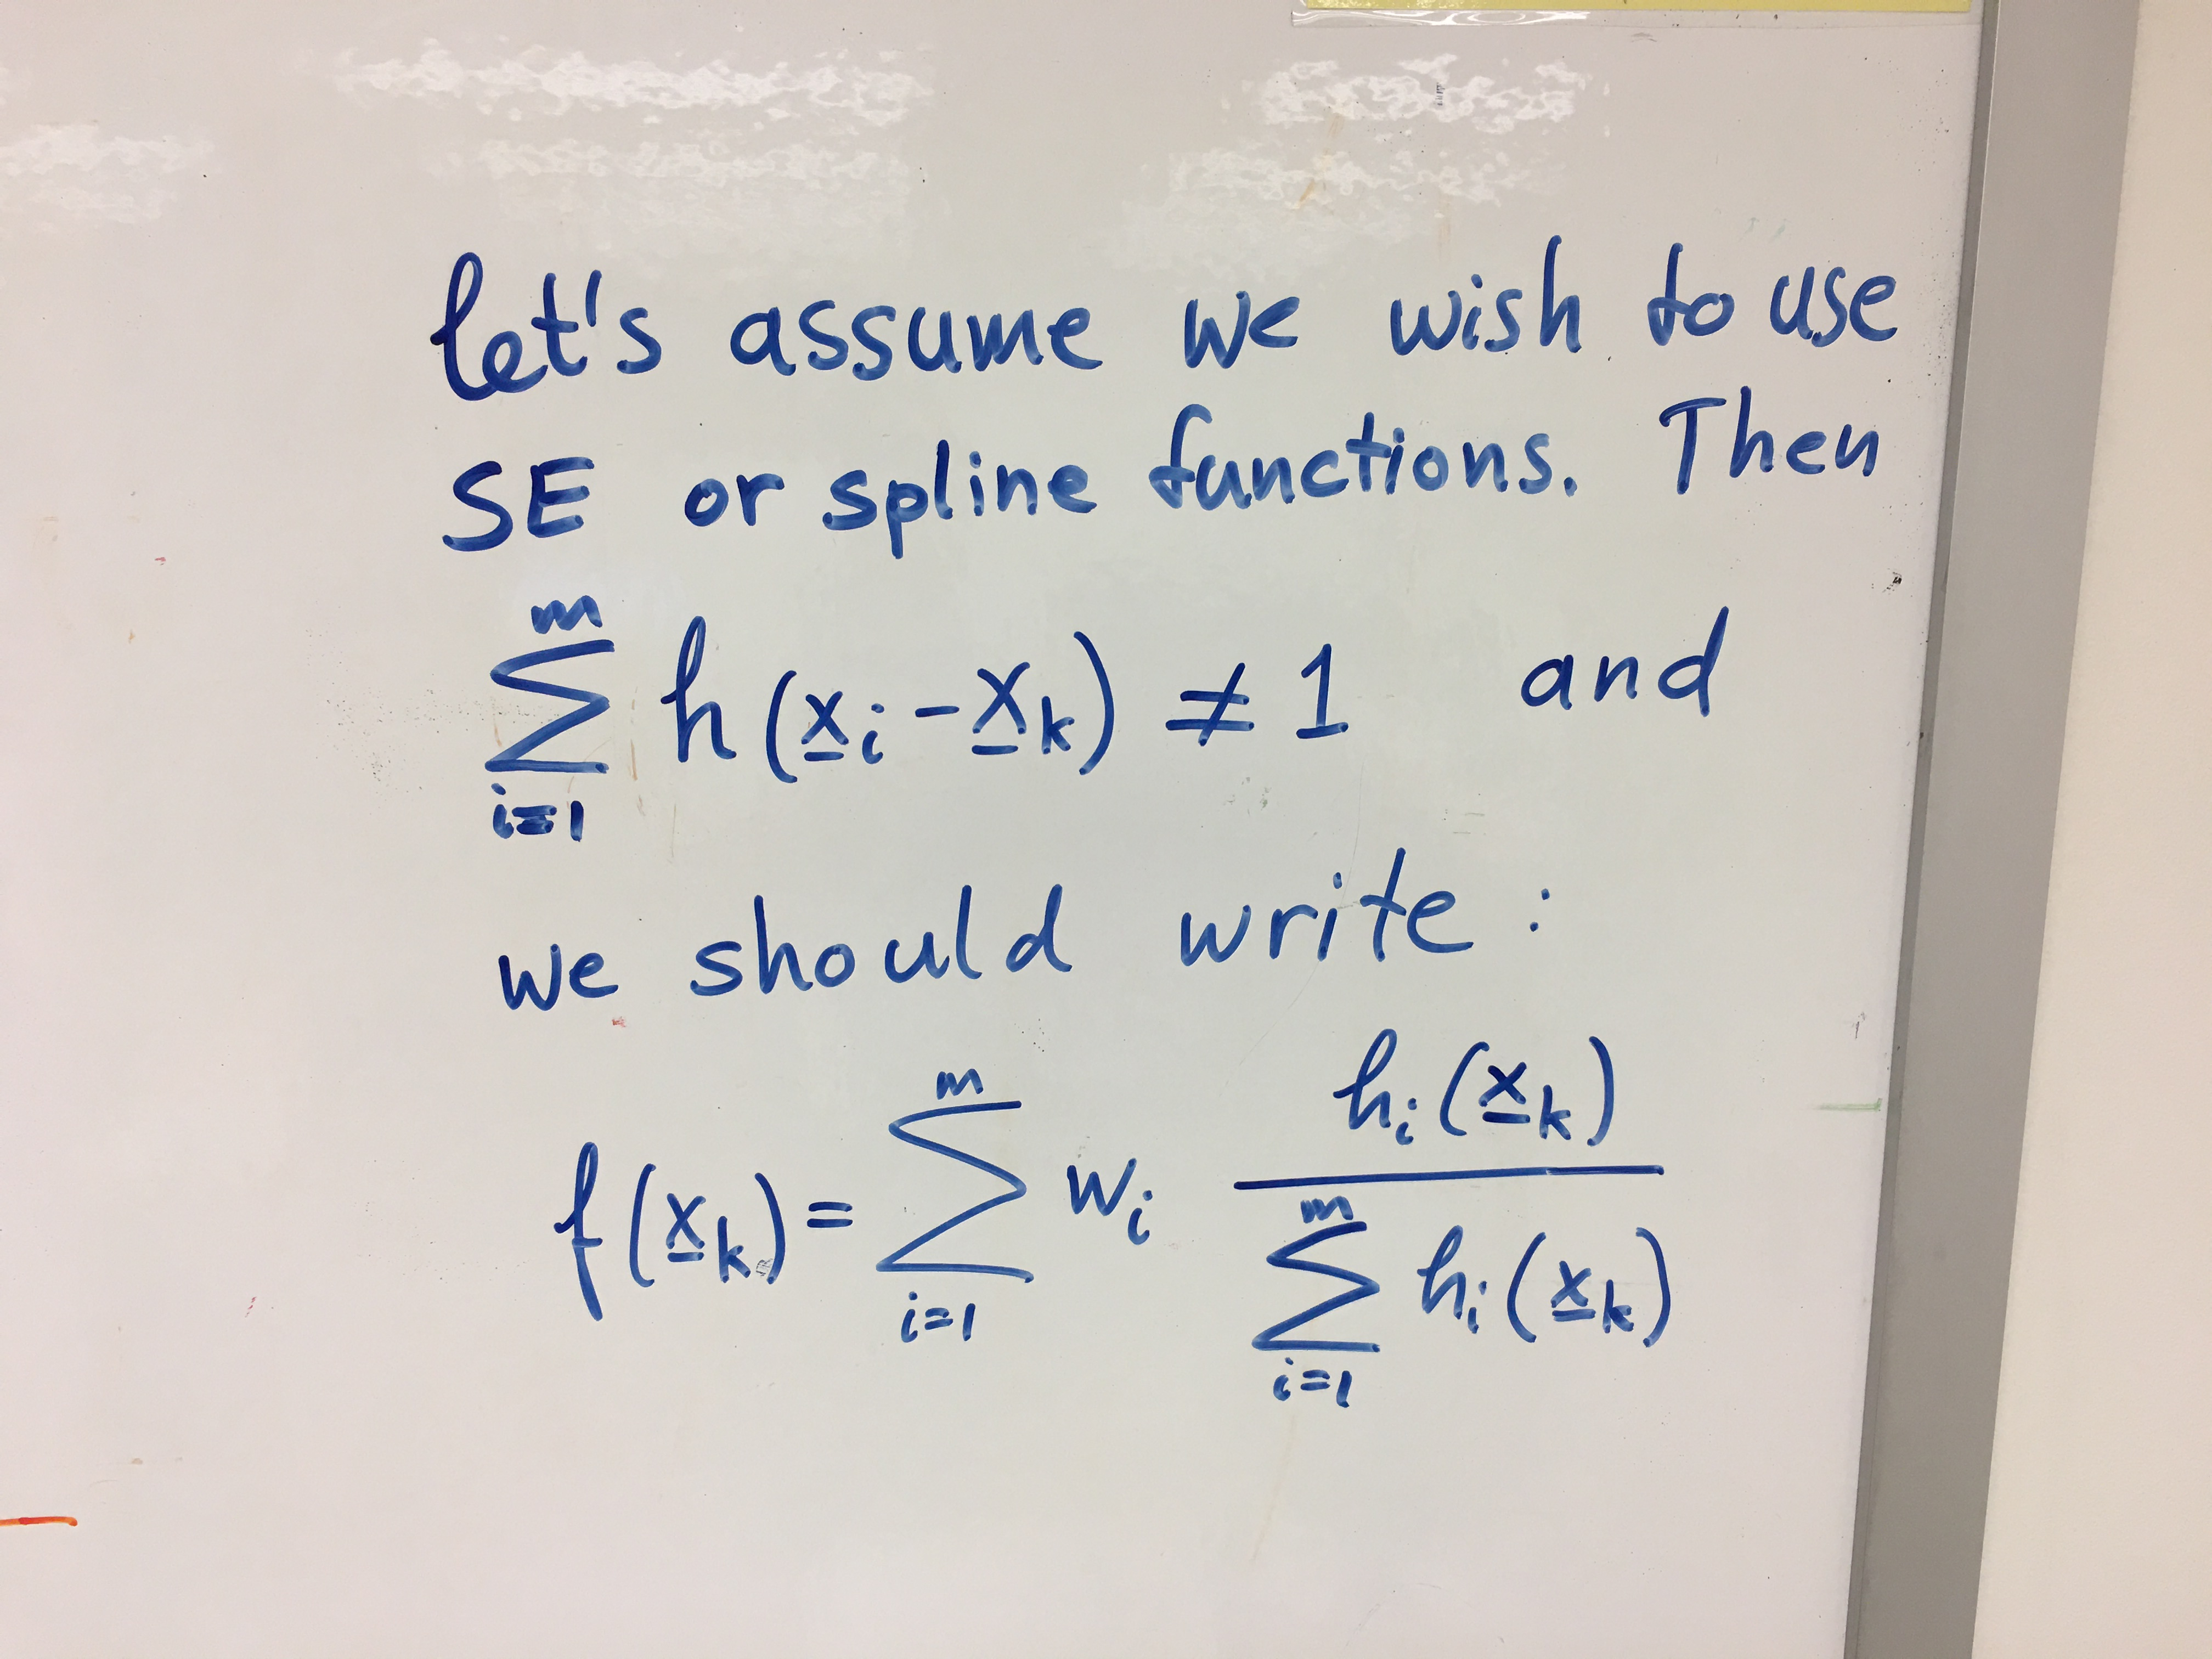 let's assume we wish to use
SE or spline functions. Then
$\sum_{i=1}^{m} h(\underline{x}_i - \underline{x}_k) \neq 1$ and
we should write :
$f(\underline{x}_k) = \sum_{i=1}^{m} w_i \frac{h_i(\underline{x}_k)}{\sum_{i=1}^{m} h_i(\underline{x}_k)}$